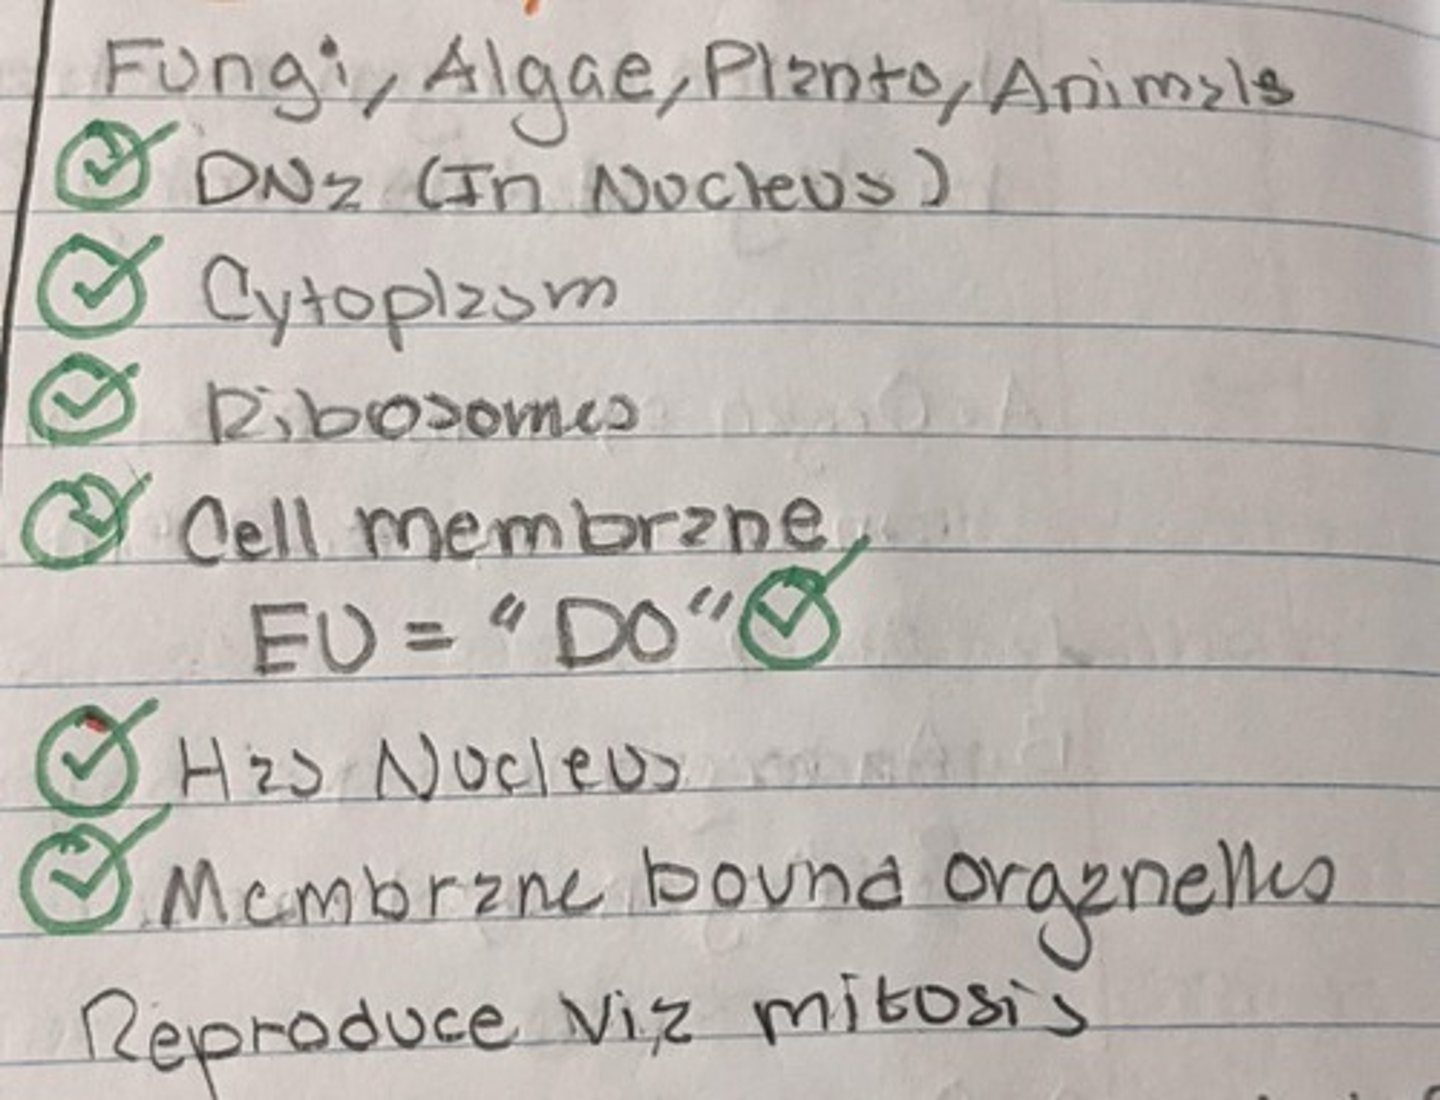 Fungi, Algae, Plants, Animals
DNa (In Nucleus)
Cytoplasm
Ribosomes
Cell membrane
EU = "DO"
Has Nucleus
Membrane bound organelles
Reproduce via mitosis